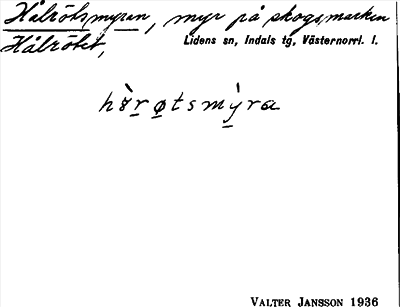 Hålrötsmyran, myr på skogsmarken
Hålrötet,
Lidens sn, Indals tg, Västernorrl. l.
VALTER JANSSON 1936